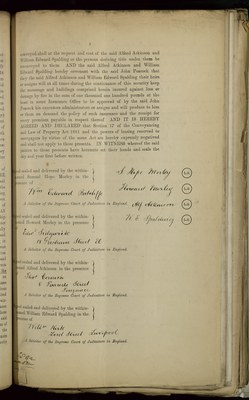 4
at the request and cost of the said Alfred Atkinson and
William Edward Spalding or the persons deriving title under them be
to them AND the said Alfred Atkinson and William
Edward Spalding hereby covenant with the said John Peacock that
they the said Alfred Atkinson and William Edward Spalding their heirs
or assigns will at all times during the continuance of this security keep
the messuage and buildings comprised herein insured against loss or
damage by fire in the sum of one thousand one hundred pounds at the
least in some Insurance Office to be approved of by the said John
Peacock his executors administrators or assigns and will produce to him
or them on demand the policy of such insurance and the receipt for
every premium payable in respect thereof AND IT IS HEREBY
AGREED AND DECLARED that Section 17 of the Conveyancing
and Law of Property Act 1881 and the powers of leasing reserved to
mortgagors by virtue of the same Act are hereby expressly negatived
and shall not apply to these presents. IN WITNESS whereof the said
parties to these presents have hereunto set their hands and seals the
day and year first before written.
sealed and delivered by the within
named Samuel Hope Morley in the
presence of
S Hope Morley
L.S
Howard Morley
L.S
A Solicitor of the Supreme Court of Judicature in England.
Alf Atkinson
L.S
sealed and delivered by the within
named Howard Morley in the presence
W. E. Spalding
L.S
Street EC
sealed and delivered by the within
named Alfred Atkinson in the presence
A Solicitor of the Supreme Court of Judicature in England.
sealed and delivered by the within
named William Edward Spalding in the
presence of
Street Liverpool
A Solicitor of the Supreme Court of Judicature in England.